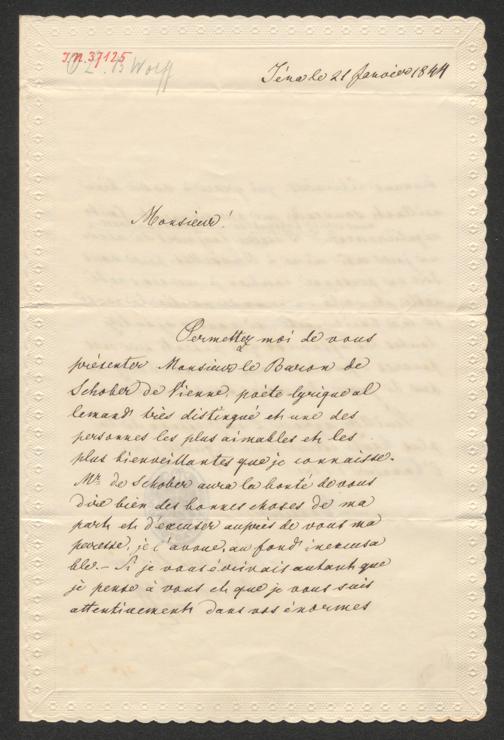 I.N. 37125
O. L. B Wolff
Iéna le 21 Janvier 1844
Monsieur!
Permettez moi de vous
présenter Monsieur le Baron de
Schober de Vienne, poëte lyrique al
lemand très distingué et une des
personnes les plus aimables et les
plus bienveillantes que je connaisse.
Mr. de Schober aura la bonté de vous
dire bien des bonnes choses de ma
part et d'excuser auprès de vous ma
paresse, je l'avoue, au fond inexcusa
ble. – Si je vous écrivais autant que
je pense à vous et que je vous suis
attentivement dans vos énormes